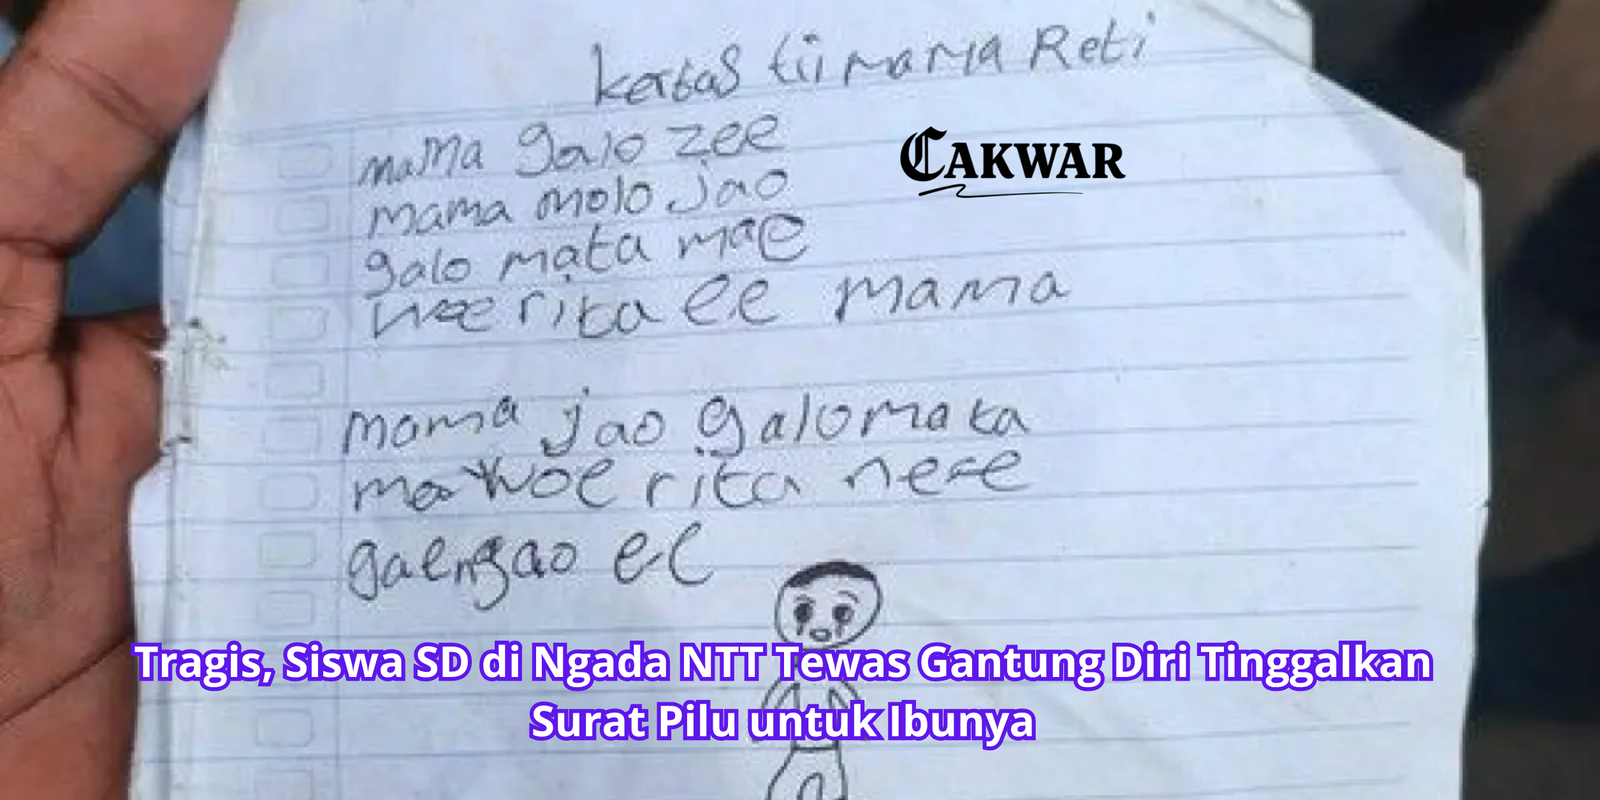 kertas tii mama Reti
mama galo zee
mama molo jao
galo mata mae
woe rita ee mama
mama jao galo mata
mae woe rita ne e e
gaengao ee
CAKWAR
Tragis, Siswa SD di Ngada NTT Tewas Gantung Diri Tinggalkan
Surat Pilu untuk Ibunya